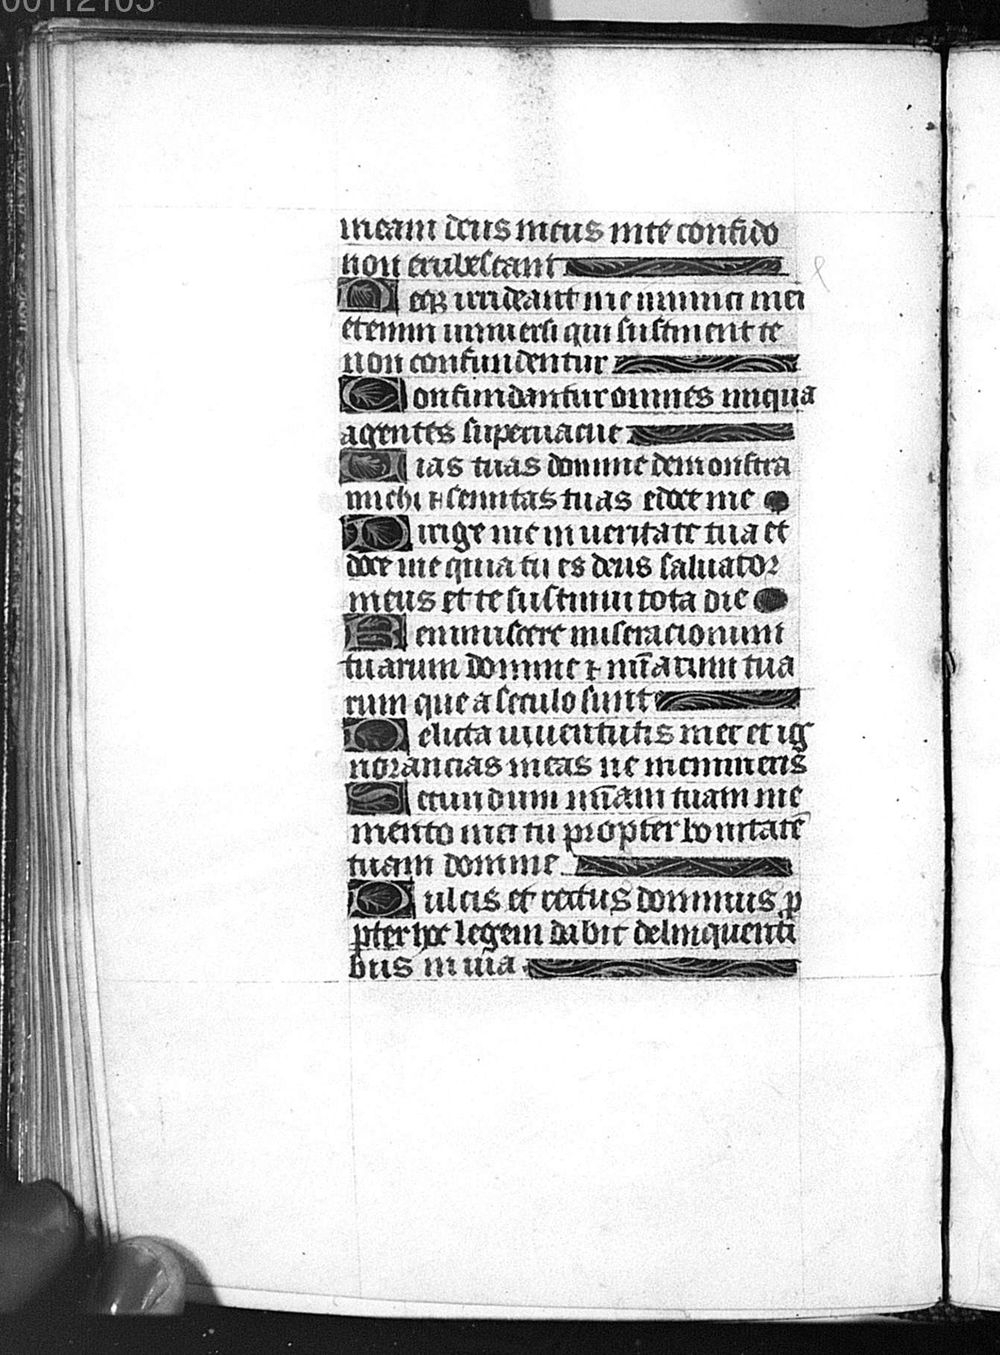 00112105
meam deus meus in te confido
non erubescam
Neqȝ irrideant me inimici mei
etenim universi qui sustinent te
non confundentur
Confundantur omnes iniqua
agentes supervacue
Vias tuas domine demonstra
michi ⁊ semitas tuas edoce me
Dirige me in veritate tua et
doce me quia tu es deus salvator
meus et te sustinui tota die
Reminiscere miseracionum
tuarum domine ⁊ mīarum tua
rum que a seculo sunt
Delicta iuventutis mee et ig
norancias meas ne memineris
Secundum mīam tuam me
mento mei tu propter bonitatē
tuam domine
Dulcis et rectus dominus ꝓ
pter hoc legem dabit delinquenti
bus in via